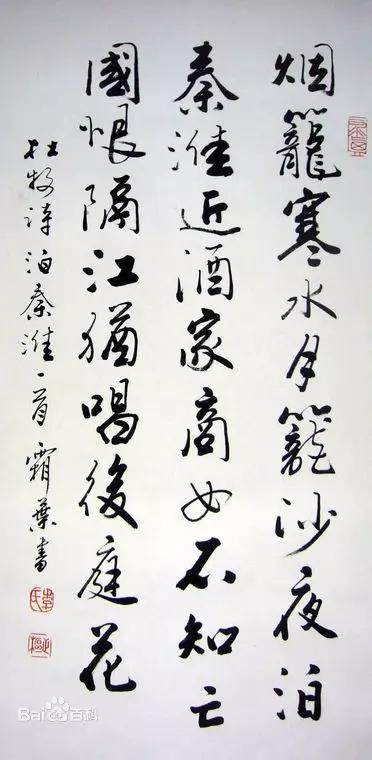 烟籠寒水月籠沙夜泊
秦淮近酒家商女不知亡
國恨隔江猶唱後庭花
杜牧诗泊秦淮一首霜葉書
Bai百科